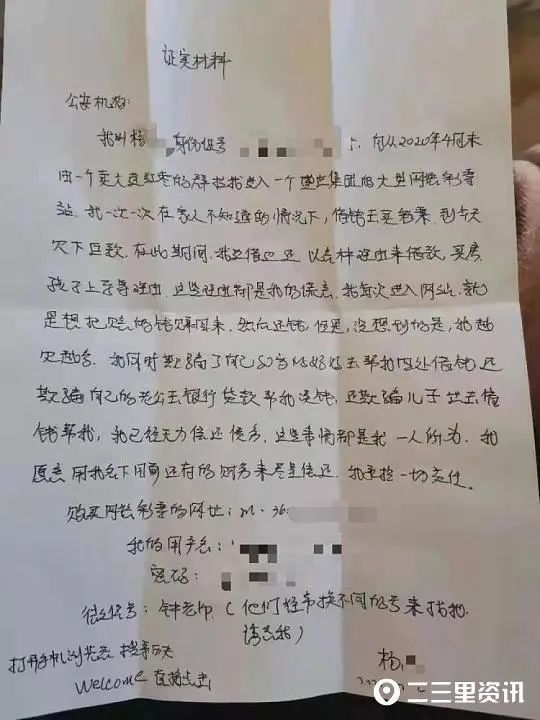 证实材料
公安机构:
我叫杨 身份证号 自从2020年4月末
由一个卖大连红枣的群拉我进入一个 集团的大型网络彩票
站. 我一次一次在家人不知道的情况下, 借钱去买彩票 到今天
欠下巨款. 在此期间. 我边借边还 以各种理由来借款, 买房
孩子上学等理由. 这些理由都是我的谎言. 我每次进入网站. 就
是想把 的钱赚回来, 然后还钱, 但是, 没想到的是, 我越
欠越多. 我同时欺骗了自己80岁妈妈去帮我四处借钱 还
欺骗自己的老公去银行贷款帮我还钱, 还欺骗儿子出去借
钱帮我, 我已经无力偿还债务. 这些事情都是我一人所为. 我
愿意用我名下目前还有的财务来尽量偿还. 我承担一切责任.
购买网络彩票的网址: m.36
我的用户名:
密码:
微信号: 钟老师. (他们经常换不同的号来找我.
请 我)
打开手机浏览器 搜索历史
welcome 直接点击
杨
二三里资讯